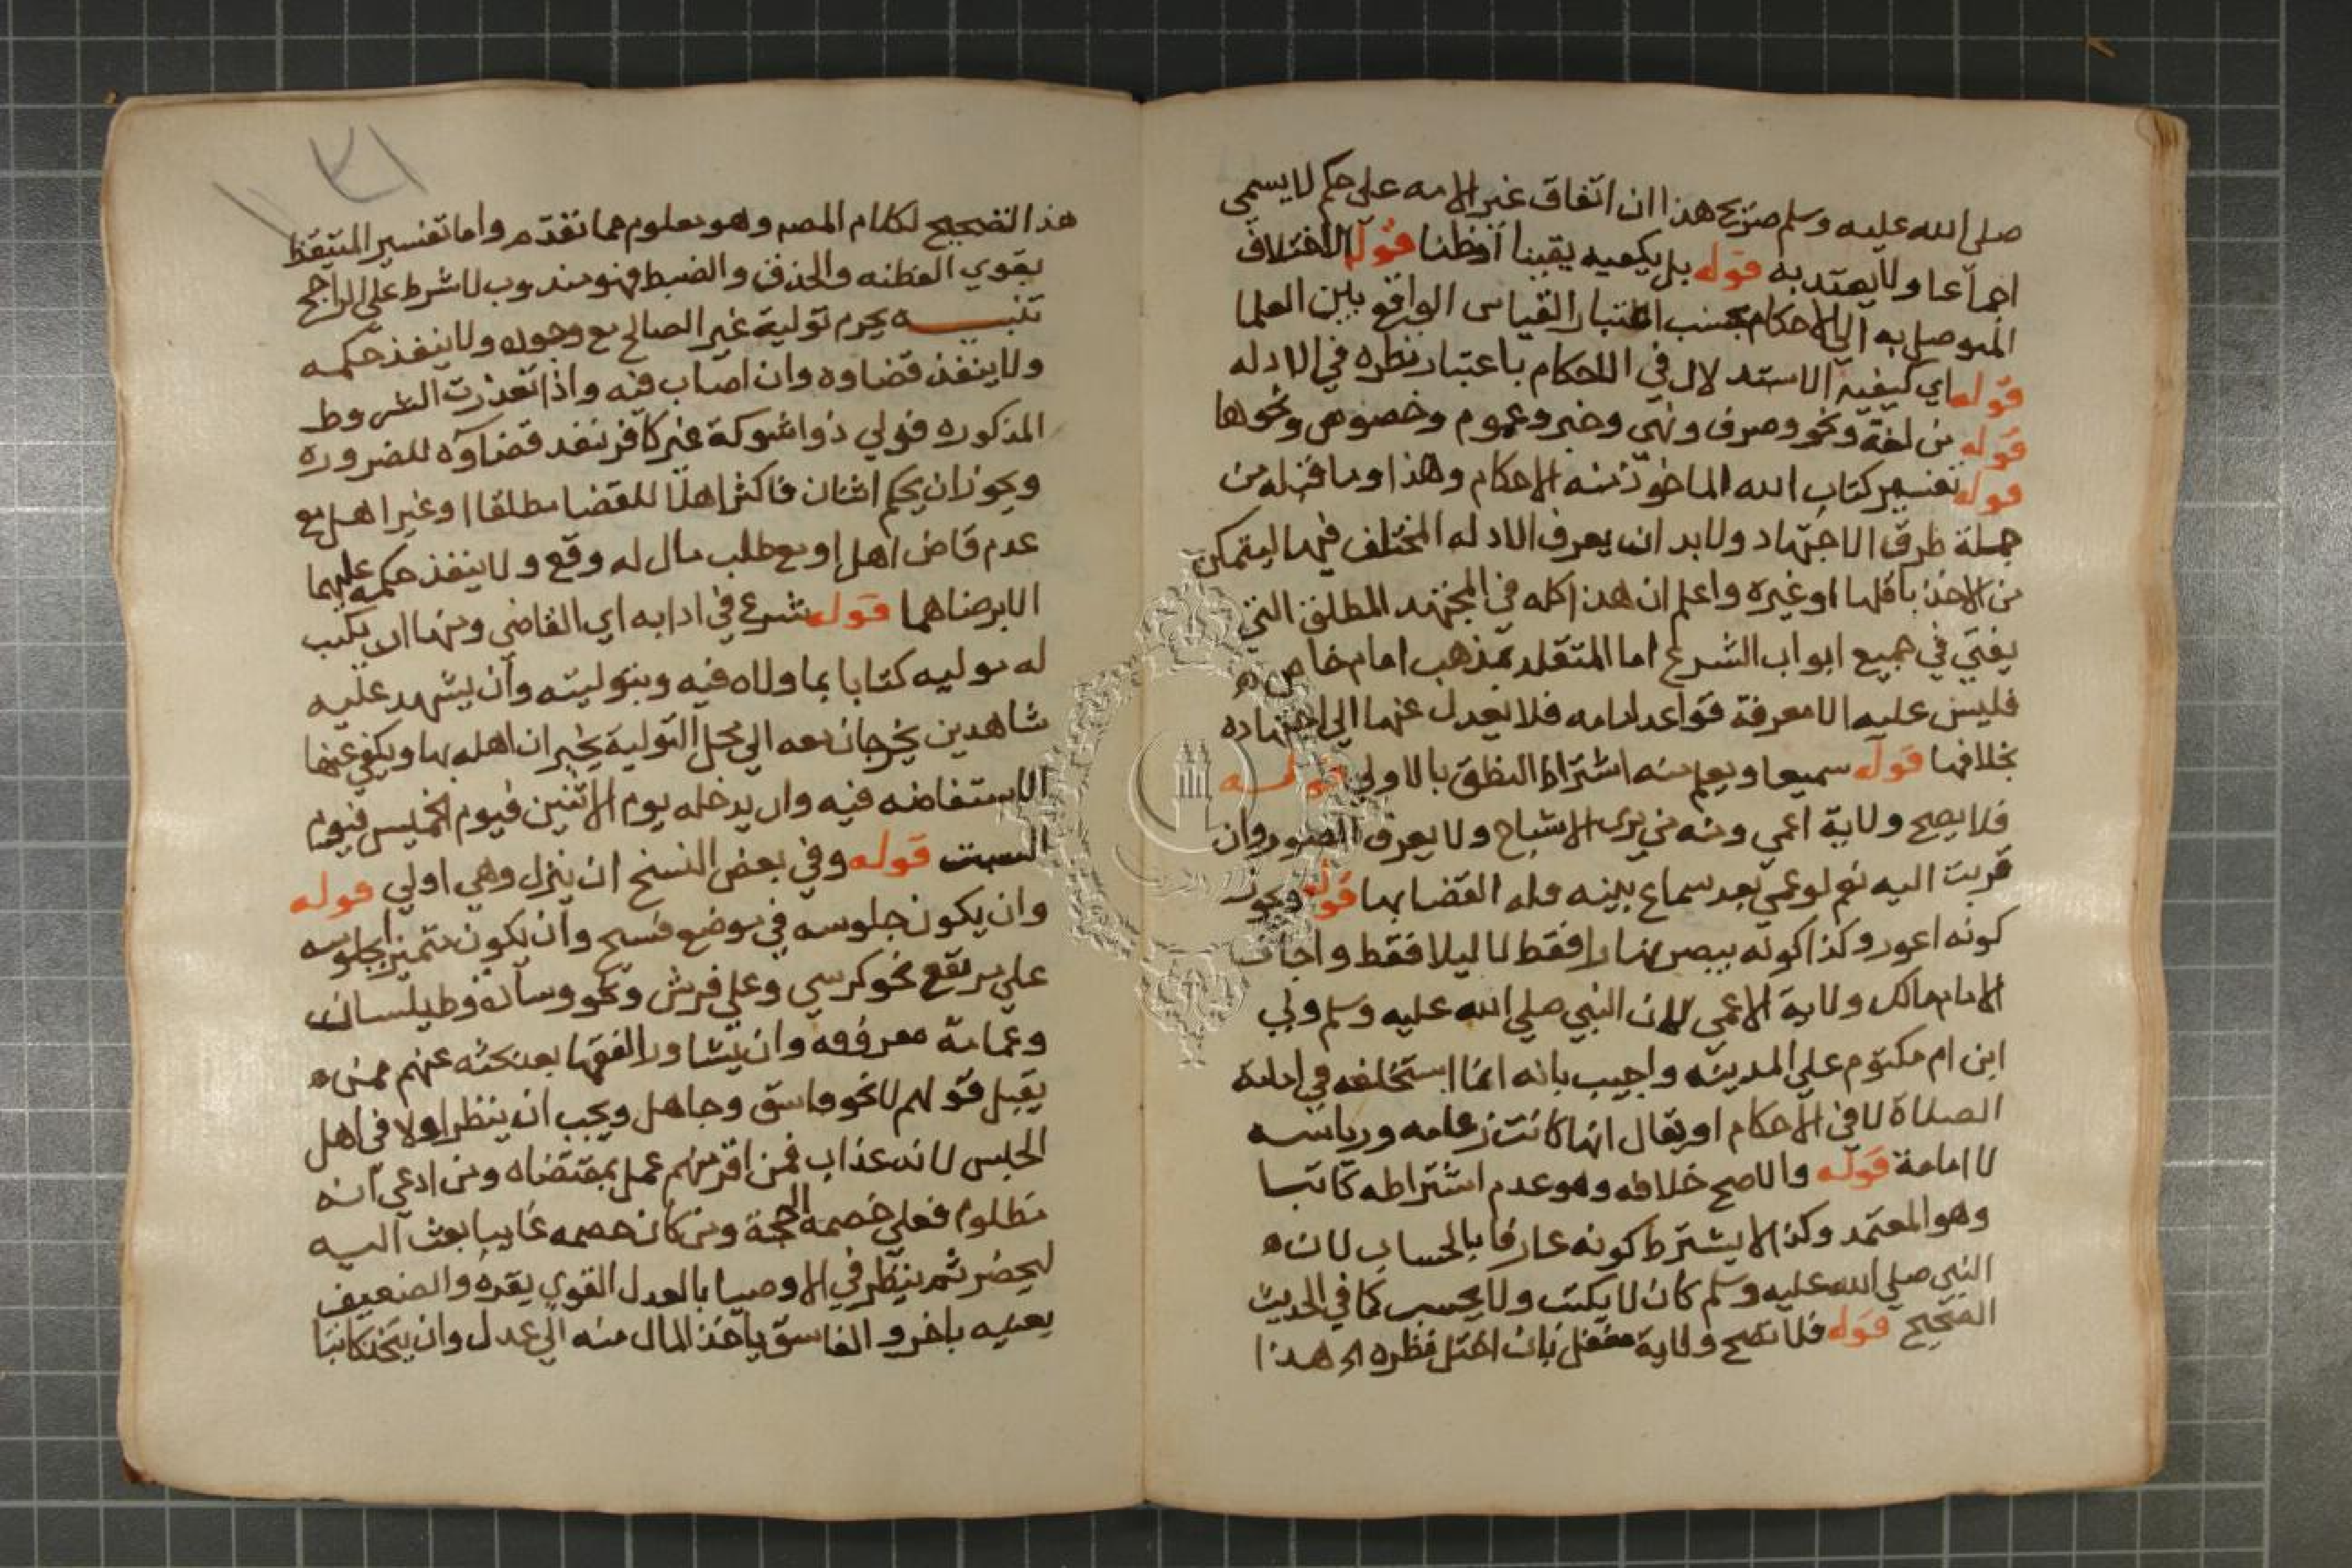 صلى الله عليه وسلم صريح هذا ان اتفاق غير الامه على حكم لا يسمى
اجماعا ولا يعتد به قوله بل يكفيه يقينا او ظنا قوله الاختلاف
الموصل به الي الاحكام بحسب اعتبار القياس الواقع بين العلما
قوله اي كيفية الاستدلال في الاحكام باعتبار نظره في الادله
قوله من لغة ونحو وصرف ونهي وخبر وعموم وخصوص ونحوها
قوله تفسير كتاب الله الماخوذ منه الاحكام وهذا وما قبله من
جملة طرق الاجتهاد ولابد ان يعرف الادله المختلف فيها ليتمكن
من الاخذ باقلها او غيره واعلم ان هذا كله في المجتهد المطلق الذي
يفتي في جميع ابواب الشرع اما المتقلد بمذهب امام خاص
فليس عليه الا معرفة قواعد امامه فلا يعدل عنها الي اجتهاده
بخلافها قوله سميعا ويعلم منه اشتراط النطق بالاولي قوله
فلا يصح ولاية اعمي ومنه من يري الاشباح ولا يعرف الصور وان
قربت اليه نعم لو عمي بعد سماع بينه فله القضا بها قوله ويجوز
كونه اعور وكذا كونه يبصر نهارا فقط لا ليلا فقط واجاز
الامام مالك ولاية الاعمي لان النبي صلي الله عليه وسلم ولي
ابن ام مكتوم علي المدينه واجيب بانه انما استخلفه في امامة
الصلاة لا في الاحكام او يقال انها كانت زعامه ورياسه
لا امامة قوله والاصح خلافه وهو عدم اشتراطه كاتبا
وهو المعتمد وكذا لا يشترط كونه عارفا بالحساب لان
النبي صلي الله عليه وسلم كان لا يكتب ولا يحسب كما في الحديث
الصحيح قوله فلا تصح ولاية مغفل بان اختل نظره الخ هذا
هذا التصحيح لكلام المصه وهو معلوم مما تقدم واما تفسير المتيقظ
بقوي الفطنه والحذق والضبط فهو مندوب لا شرط علي الراجح
تنبيه يحرم تولية غير الصالح مع وجوده ولا ينفذ حكمه
ولا ينفذ قضاوه وان اصاب فيه واذا تعذرت الشروط
المذكوره فولي ذوا شوكة غير كافر نفد قضاوه للضروره
ويجوز ان يحكم اثنان فاكثر اهلا للقضا مطلقا او غير اهل مع
عدم قاض اهل او مع طلب مال له وقع ولا ينفذ حكمه عليهما
الا برضاهما قوله شرع في ادابه اي القاضي ومنها ان يكتب
له موليه كتابا بما ولاه فيه وبتوليته وان يشهد عليه
شاهدين يخرجان معه الي محل التولية يخبران اهله بها ويكفي عنها
الاستفاضه فيه وان يدخله يوم الاثنين فيوم الخميس فيوم
السبت قوله وفي بعض النسخ ان ينزل وهي اولي قوله
وان يكون جلوسه في موضع فسيح وان يكون متميزا بجلوسه
علي مرتفع نحو كرسي وعلي فرش ونحو وساده وطيلسان
وعمامة معروفه وان يشاور الفقها بعد بحثه عنهم ممن
يقبل قولهم لا نحو فاسق وجاهل ويجب ان ينظر اولا في اهل
الحبس لانه عذاب فمن اقر منهم عمل بمقتضاه ومن ادعي انه
مظلوم فعلي خصمه الحجة ومن كان خصمه غايبا بعث اليه
ليحضر ثم ينظر في الاوصيا بالعدل القوي يقره والضعيف
يعينه باخر والفاسق ياخذ المال منه الي عدل وان يتخذ كاتبا